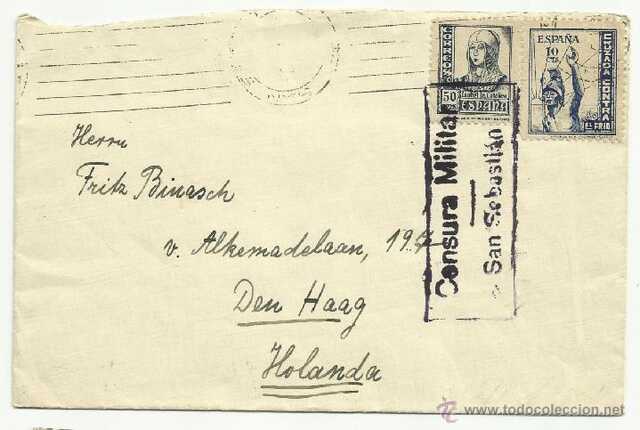 CORREOS
50 CTS
Isabel la Católica
ESPAÑA
ESPAÑA
10
CTS
CRUZADA CONTRA
EL FRIO
Censura Militar
San Sebastián
Herrn
Fritz Binasch
v. Alkemadelaan, 19
Den Haag
Holanda
www.todocoleccion.net